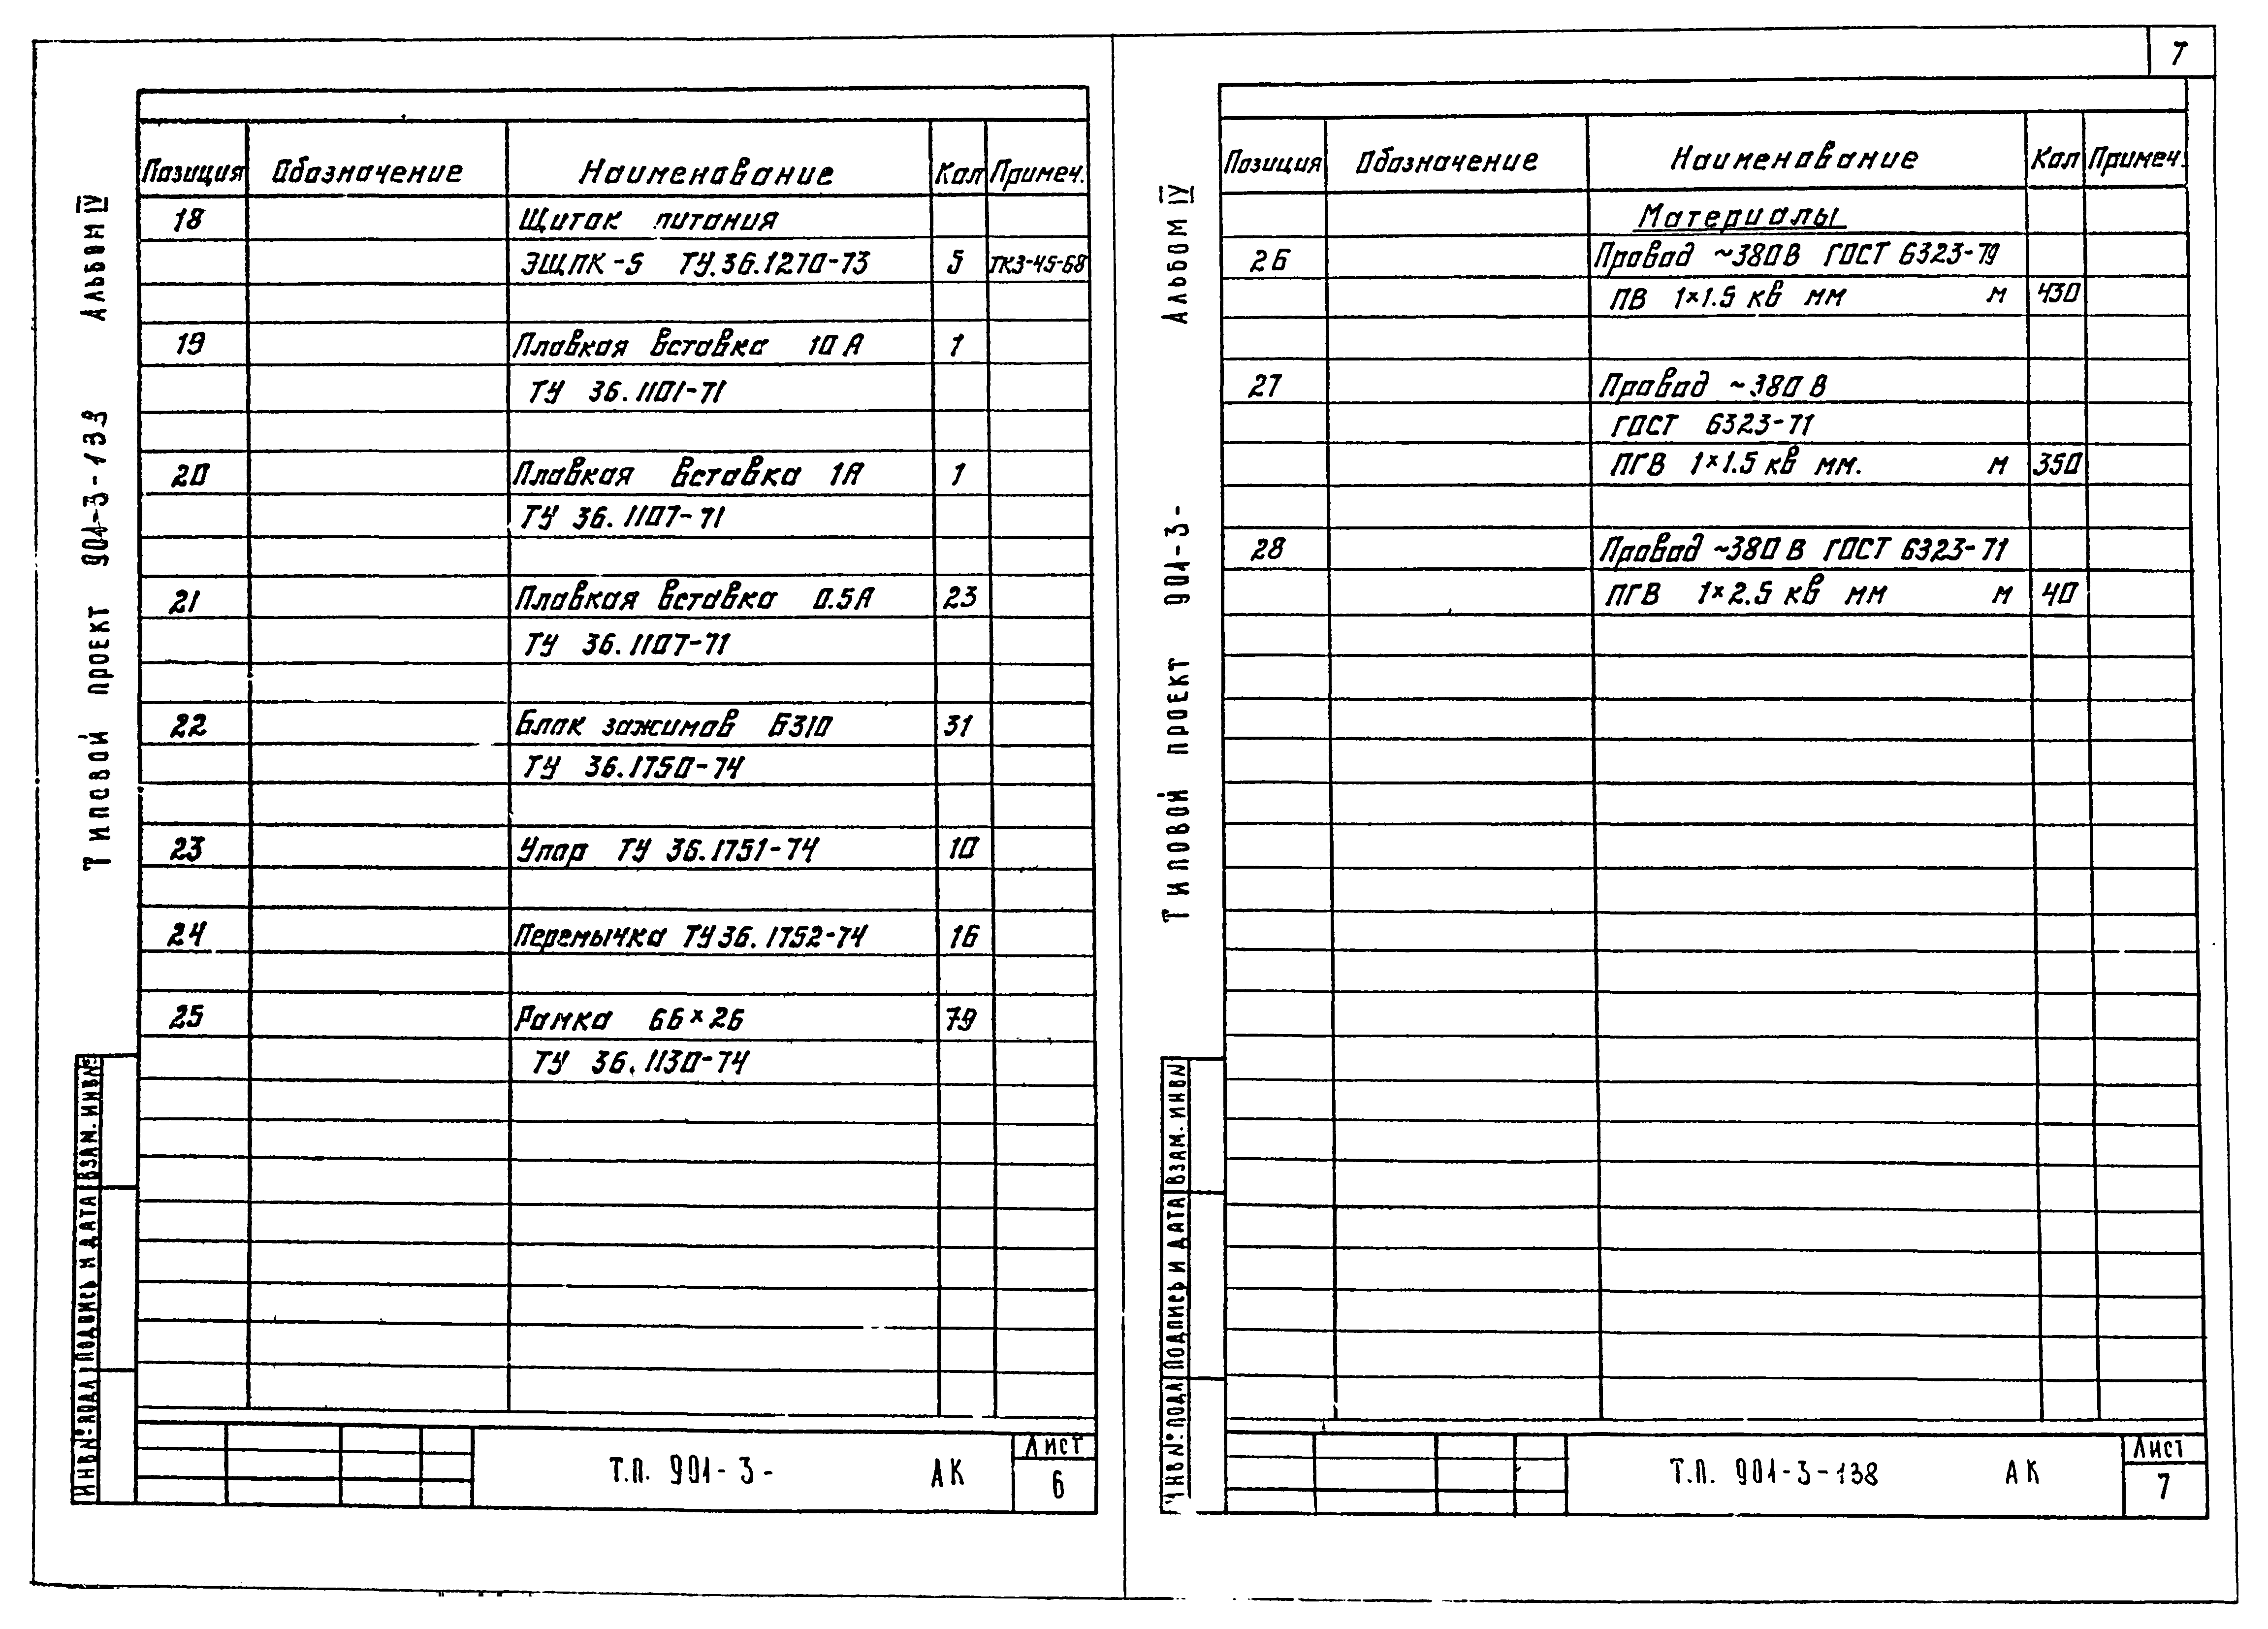 7
Альбом IV
Типовой проект 901-3-138
Позиция Обозначение Наименование Кол Примеч.
18 Щиток питания
ЭЩПК-5 ТУ.36.1270-73 5 ТК3-45-68
19 Плавкая вставка 10А 1
ТУ 36.1101-71
20 Плавкая вставка 1А 1
ТУ 36.1107-71
21 Плавкая вставка 0.5А 23
ТУ 36.1107-71
22 Блок зажимов Б310 31
ТУ 36.1750-74
23 Упор ТУ 36.1751-74 10
24 Перемычка ТУ36.1752-74 16
25 Рамка 66×26 79
ТУ 36.1130-74
ВЗАМ. ИНВ№
ПОДПИСЬ И ДАТА
ИНВ№ ПОДЛ
Т.П. 901-3- АК
Лист
6
Альбом IV
Типовой проект 901-3-
Позиция Обозначение Наименование Кол Примеч.
Материалы
26 Провод ~380В ГОСТ 6323-79
ПВ 1×1.5 кв мм м 430
27 Провод ~380 В
ГОСТ 6323-71
ПГВ 1×1.5 кв мм. м 350
28 Провод ~380 В ГОСТ 6323-71
ПГВ 1×2.5 кв мм м 40
ВЗАМ. ИНВ№
ПОДПИСЬ И ДАТА
ИНВ№ ПОДЛ
Т.П. 901-3-138 АК
Лист
7